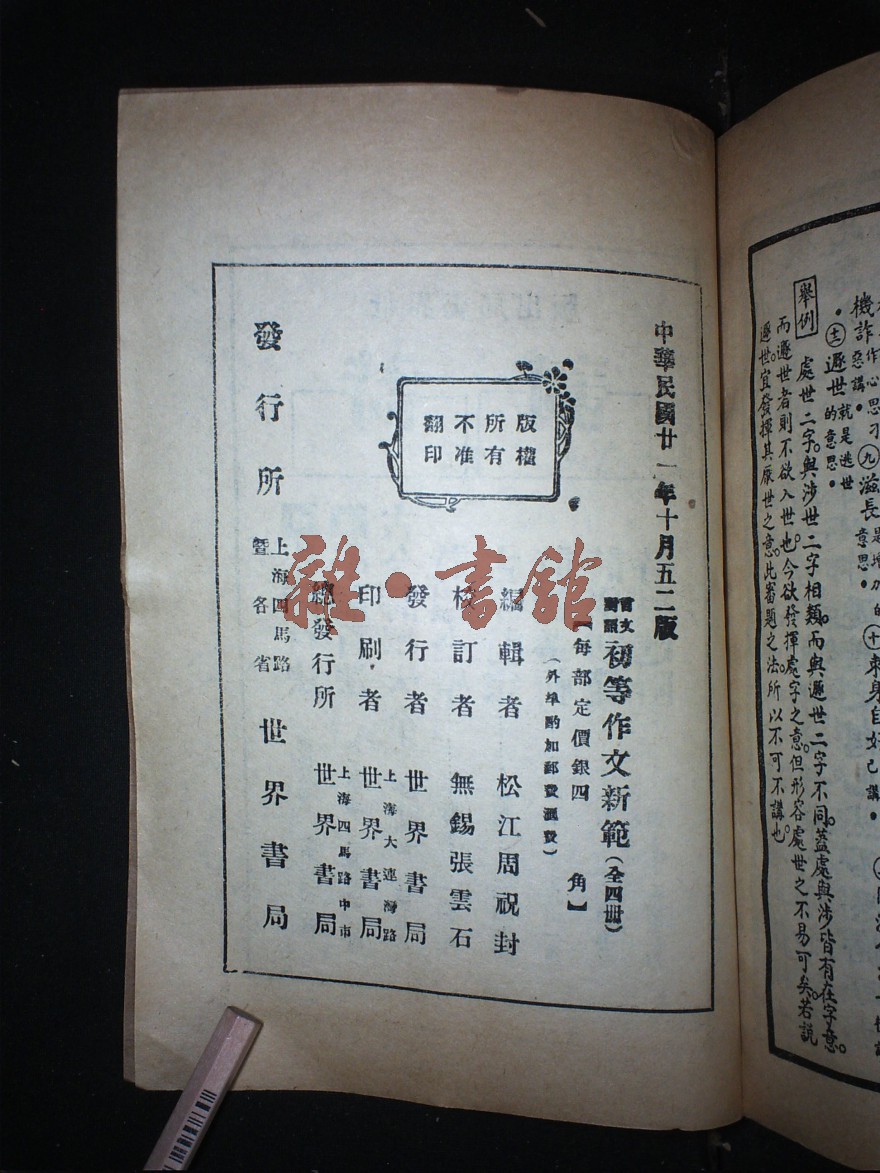 機詐
惡講。
㊈滋長
意思。
㊉
㊂遯世
就是逃世
的意思。
舉例
處世二字。與涉世二字相類。而與遯世二字不同。蓋處與涉皆有在字意。
而遯世者則不欲入世也。今欲發揮處字之意。但形容處世之不易可矣。若說
遯世。宜發揮其厭世之意。此審題之法。所以不可不講也
中華民國廿一年十月五二版
言文對照初等作文新範(全四冊)
【每部定價銀四角】
(外埠酌加郵費滙費)
版權
所有
不准
翻印
編輯者 松江周祝封
校訂者 無錫張雲石
發行者 世界書局
印刷者 上海大連灣路 世界書局
總發行所 上海四馬路中市 世界書局
發行所 上海四馬路 暨各省 世界書局
雜·書館